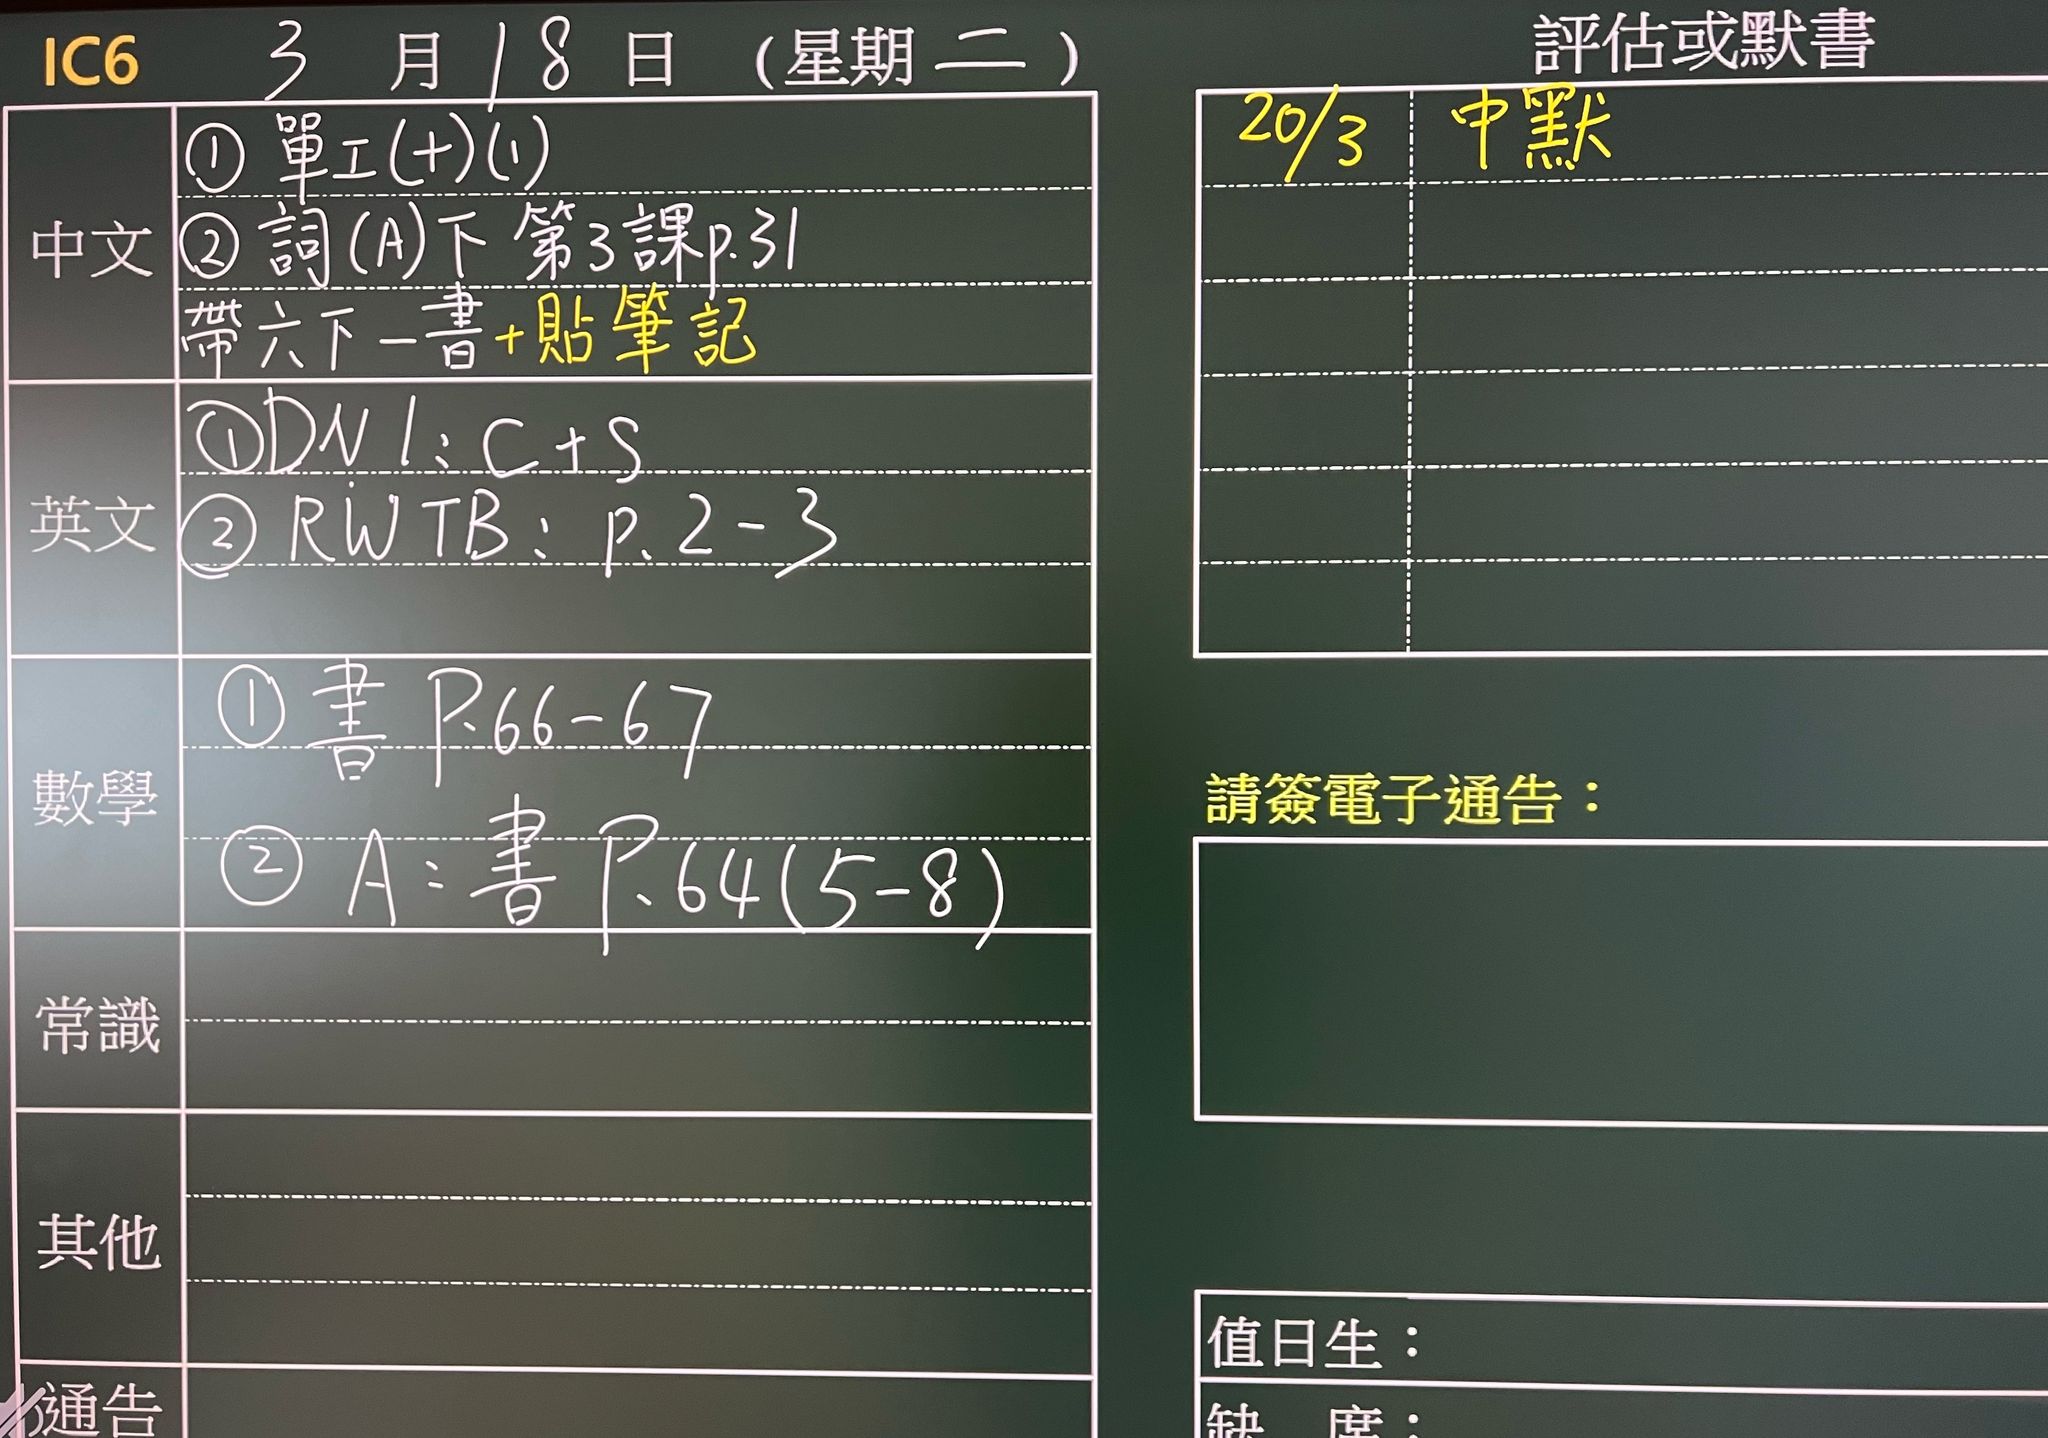 IC6 3 月 18 日 (星期 二 )
中文
① 單工(十)(1)
② 詞(A)下 第3課p.31
帶六下一書+貼筆記
英文
① DN1: C + S
② RW TB: p.2-3
數學
① 書 P.66-67
② A: 書 P.64(5-8)
常識
其他
通告
評估或默書
20/3 中默
請簽電子通告：
值日生：
缺 席：